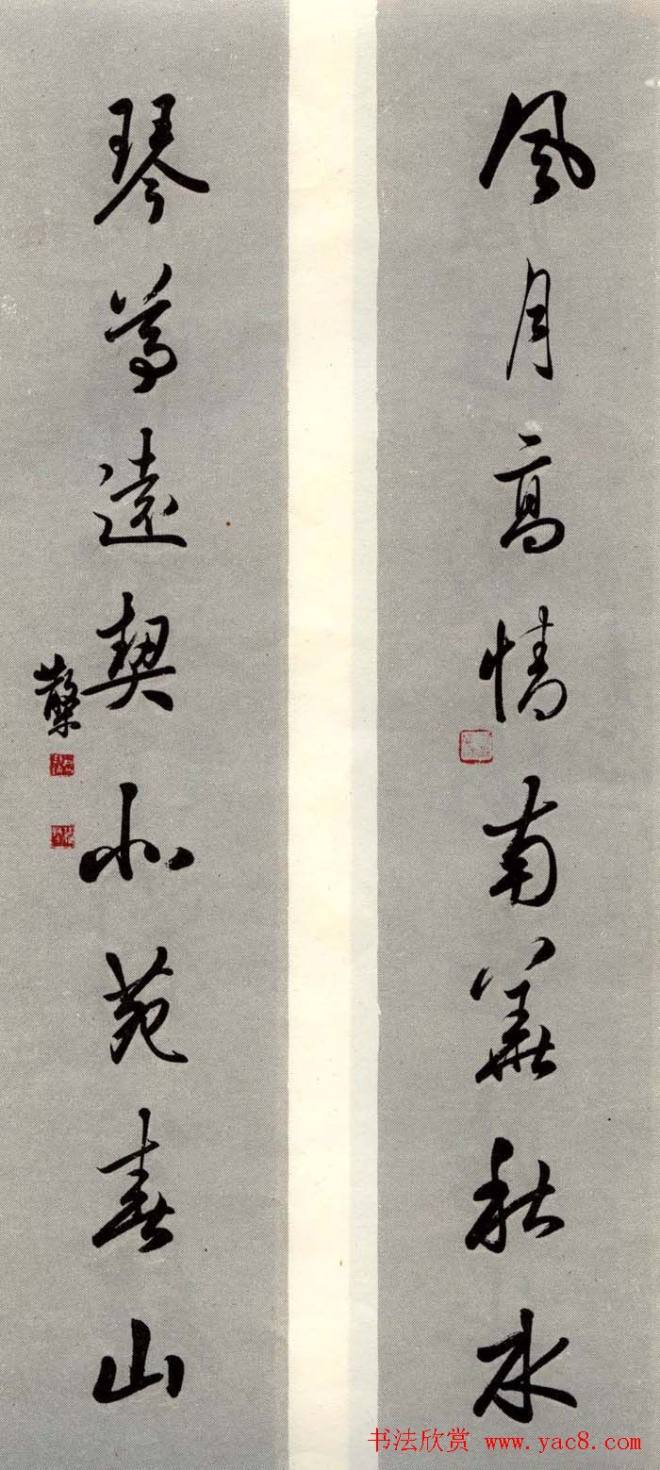 風月高情南華秋水
琴尊遠契小苑春山
书法欣赏 www.yac8.com